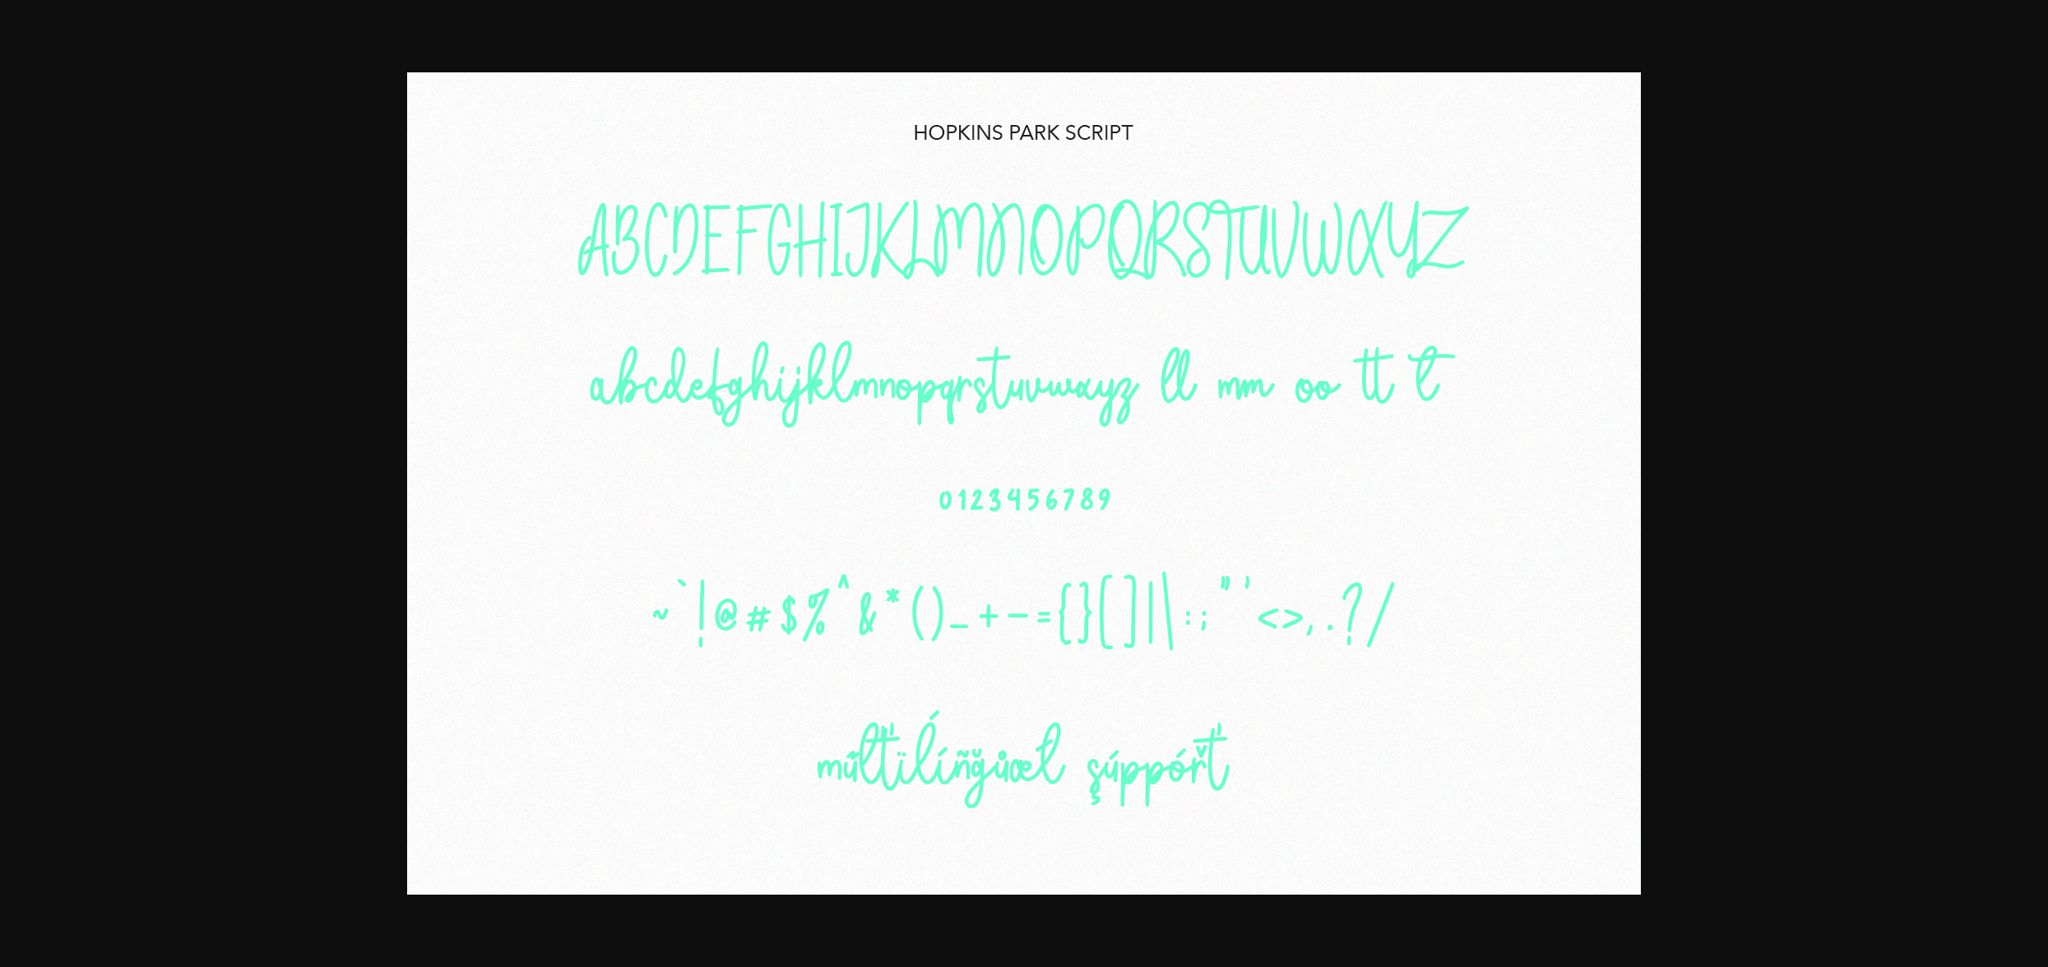 HOPKINS PARK SCRIPT
ABCDEFGHIJKLMNOPQRSTUVWXYZ
abcdefghijklmnopqrstuvwxyz ll mm oo tt t
0123456789
~`!@#$%^&*()_+-={}[]|\:;"'<>,.?/
műlťïlíñğůæł şúppóřť